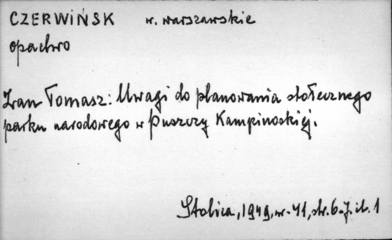 CZERWIŃSK w. warszawskie
opactwo
Zan Tomasz: Uwagi do planowania stołecznego
parku narodowego w Puszczy Kampinoskiej.
Stolica, 1949, nr 41, str. 6-7. il. 1